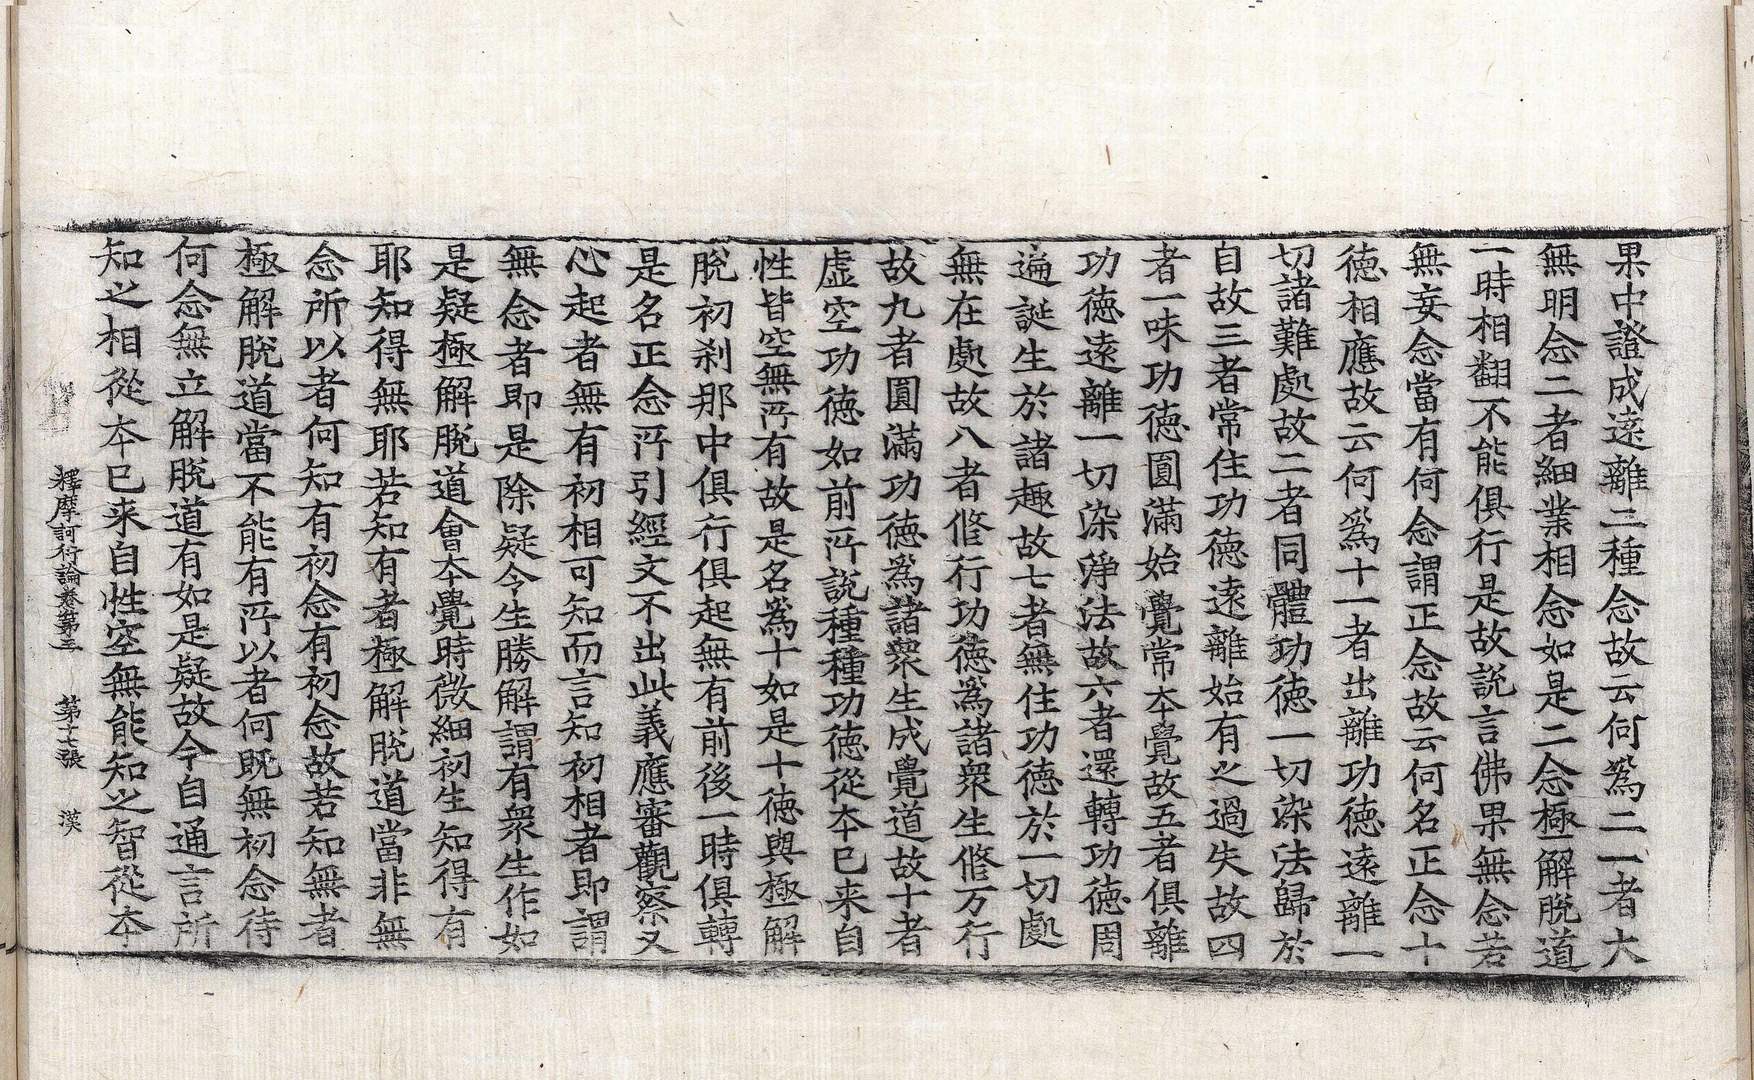 果中證成遠離二種念故云何爲二一者大
無明念二者細業相念如是二念極解脫道
一時相翻不能俱行是故說言佛果無念若
無妄念當有何念謂正念故云何名正念十
德相應故云何爲十一者出離功德遠離一
切諸難處故二者同體功德一切染法歸於
自故三者常住功德遠離始有之過失故四
者一味功德圓滿始覺常本覺故五者俱離
功德遠離一切染淨法故六者還轉功德周
遍誕生於諸趣故七者無住功德於一切處
無在處故八者修行功德爲諸衆生修万行
故九者圓滿功德爲諸衆生成覺道故十者
虛空功德如前所說種種功德從本已来自
性皆空無所有故是名爲十如是十德與極解
脫初刹那中俱行俱起無有前後一時俱轉
是名正念所引經文不出此義應審觀察又
心起者無有初相可知而言知初相者即謂
無念者即是除疑令生勝解謂有衆生作如
是疑極解脫道會本覺時微細初生知得有
耶知得無耶若知有者極解脫道當非無
念所以者何知有初念有初念故若知無者
極解脫道當不能有所以者何既無初念待
何念無立解脫道有如是疑故今自通言所
知之相從本已来自性空無能知之智從本
釋摩訶衍論卷第三　第十七張　漢